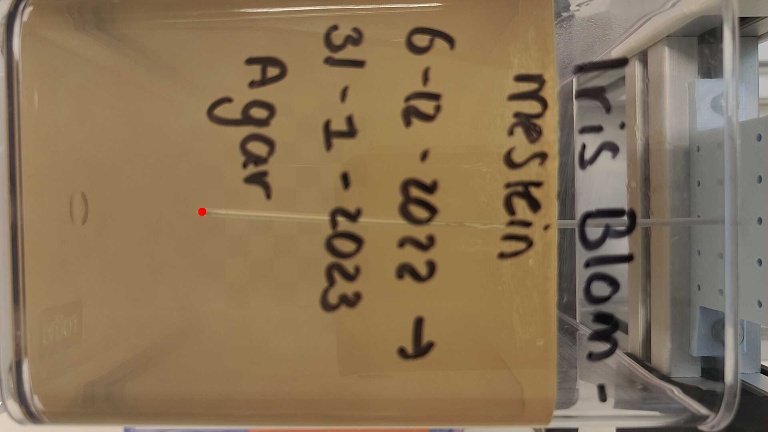 Iris Blom -
meskin
6-12-2022 →
31-1-2023
Agar